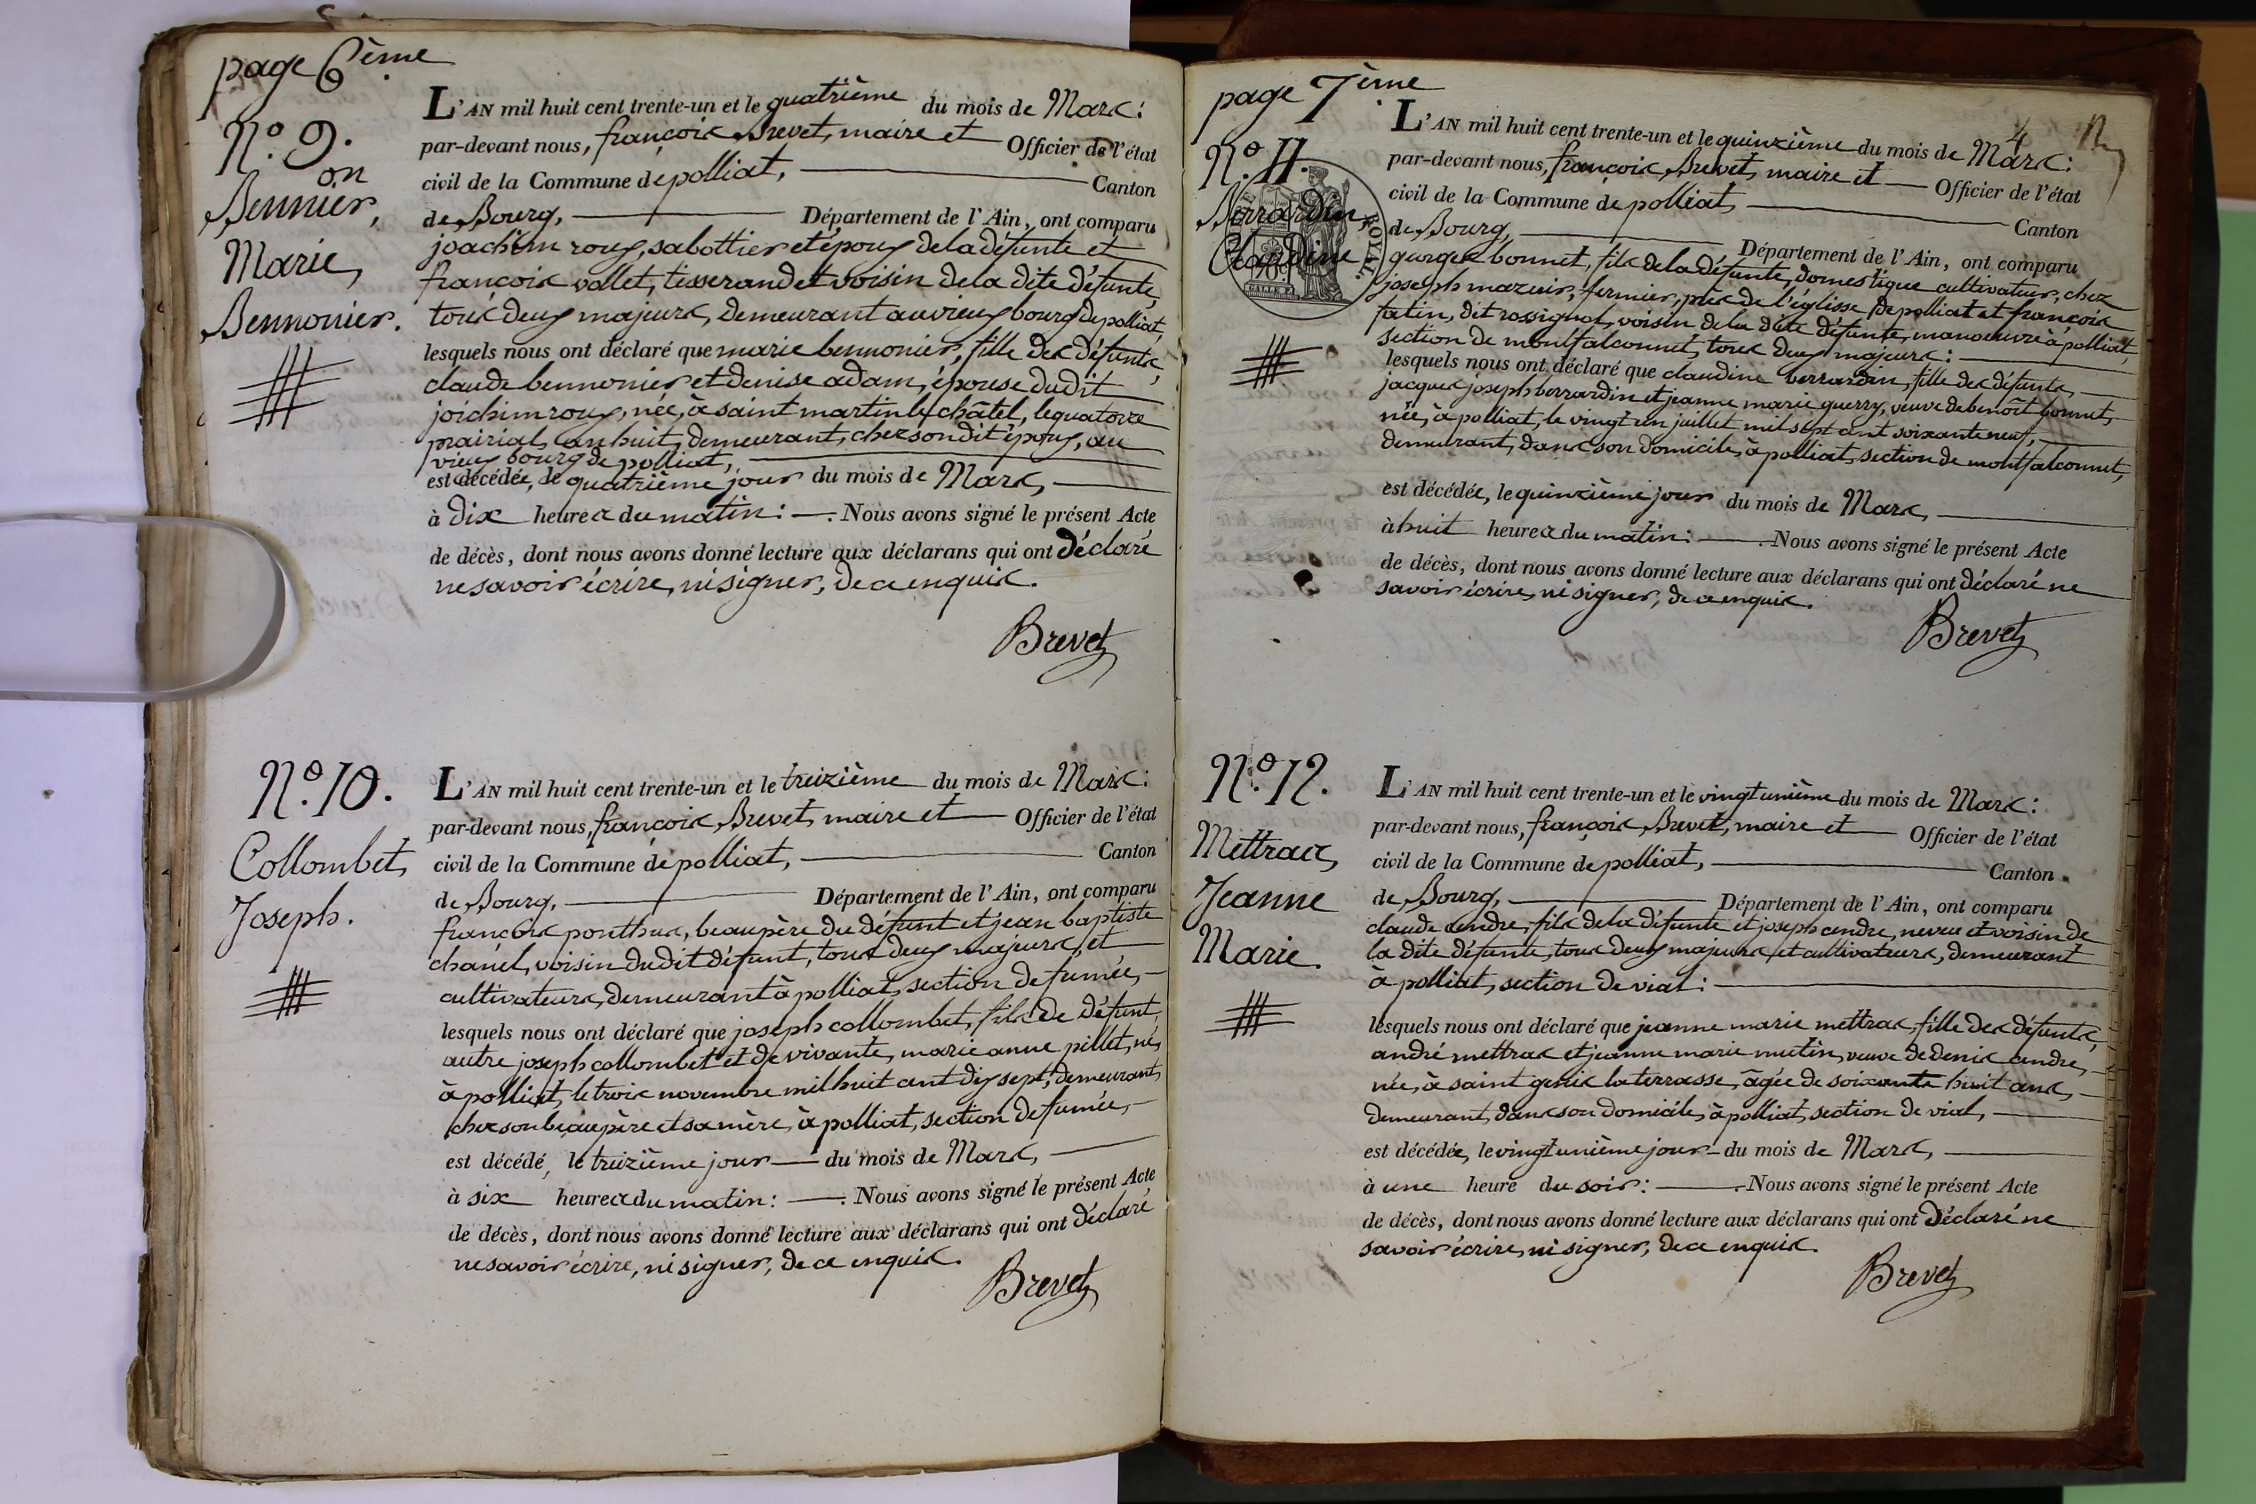 page 6ème
N.o 9.
on
Bennier,
Marie,
Bennonier.
L'AN mil huit cent trente-un et le quatrième du mois de Mars:
par-devant nous, françois Brevet, maire et Officier de l'état
civil de la Commune de polliat, Canton
de Bourg, Département de l'Ain, ont comparu
joachim roux, sabottier et époux de la défunte et
françois vollet, tisserand et voisin de la dite défunte,
tous deux majeurs, demeurant au vieux bourg de polliat,
lesquels nous ont déclaré que marie bennonier, fille des défunts,
claude bennonier et denise adam, épouse dudit
joichim roux, née, à saint martin le châtel, le quatorze
prairial, an huit, demeurant, chez son dit époux, au
vieux bourg de polliat,
est décédée, le quatrième jour du mois de Mars,
à dix heures du matin: Nous avons signé le présent Acte
de décès, dont nous avons donné lecture aux déclarans qui ont déclaré
ne savoir écrire, ni signer, de ce enquis.
Brevet
N.o 10.
Collombet,
Joseph.
L'AN mil huit cent trente-un et le treizième du mois de Mars:
par-devant nous, françois Brevet, maire et Officier de l'état
civil de la Commune de polliat, Canton
de Bourg, Département de l'Ain, ont comparu
françois ponthus, beaupère du défunt et jean baptiste
chanel, voisin dudit défunt, tous deux majeurs, et
cultivateurs, demeurant à polliat, section de fumée,
lesquels nous ont déclaré que joseph collombet, fils de défunt,
autre joseph collombet et de vivante, marie anne pillet, né,
à polliat, le trois novembre mil huit cent dix sept, demeurant,
chez son beaupère et sa mère, à polliat, section de fumée,
est décédé, le treizième jour du mois de Mars,
à six heures du matin: Nous avons signé le présent Acte
de décès, dont nous avons donné lecture aux déclarans qui ont déclaré
ne savoir écrire, ni signer, de ce enquis.
Brevet
page 7ème
4
N.o 11.
Berrardin,
Claudine
ROYAL.
L'AN mil huit cent trente-un et le quinzième du mois de Mars:
par-devant nous, françois Brevet, maire et Officier de l'état
civil de la Commune de polliat, Canton
de Bourg, Département de l'Ain, ont comparu
george bonnet, fils de la défunte, domestique cultivateur, chez
joseph mazuir, fermier, près de l'église de polliat et françois
fatin, dit rossignol, voisin de la dite défunte, manoeuvre à polliat,
section de montfalconnet, tous deux majeurs:
lesquels nous ont déclaré que claudine berrardin, fille des défunts,
jacques joseph berrardin et jeanne marie guerry, veuve de benoît bonnet,
née, à polliat, le vingt un juillet mil sept cent soixante neuf,
demeurant, dans son domicile, à polliat, section de montfalconnet,
est décédée, le quinzième jour du mois de Mars,
à huit heures du matin: Nous avons signé le présent Acte
de décès, dont nous avons donné lecture aux déclarans qui ont déclaré ne
savoir écrire, ni signer, de ce enquis.
Brevet
N.o 12.
Mettras,
Jeanne
Marie.
L'AN mil huit cent trente-un et le vingt unième du mois de Mars:
par-devant nous, françois Brevet, maire et Officier de l'état
civil de la Commune de polliat, Canton
de Bourg, Département de l'Ain, ont comparu
claude cendre, fils de la défunte et joseph cendre, neveu et voisin de
la dite défunte, tous deux majeurs, et cultivateurs, demeurant
à polliat, section de vial:
lesquels nous ont déclaré que jeanne marie mettras, fille des défunts,
andré mettras et jeanne marie mutin, veuve de denis cendre,
née, à saint genis la terrasse, âgée de soixante huit ans,
demeurant, dans son domicile, à polliat, section de vial,
est décédée, le vingt unième jour du mois de Mars,
à une heure du soir: Nous avons signé le présent Acte
de décès, dont nous avons donné lecture aux déclarans qui ont déclaré ne
savoir écrire, ni signer, de ce enquis.
Brevet